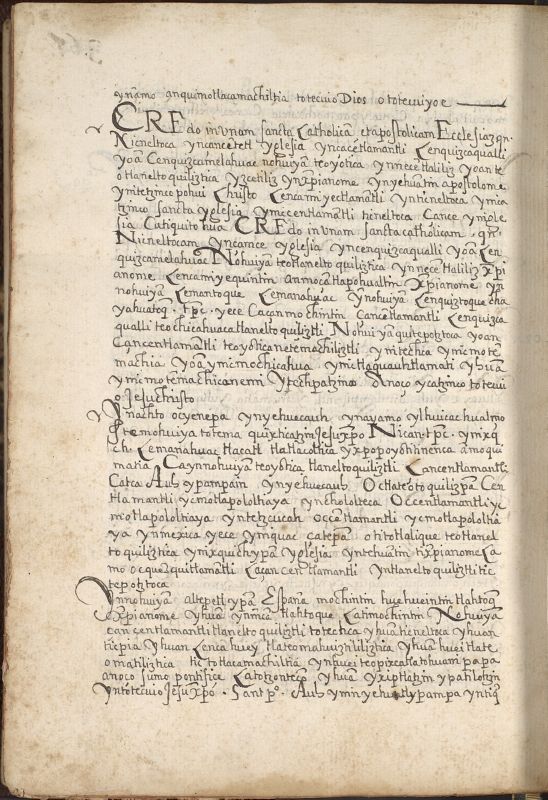 ynamo anquimotlacamachiltia totecuio Dios o totecuiyoe
CREdo in Vnam sancta Catholicã et apostolicam Ecclesiaz qn.
Nicneltoca yncancetetl yglesia yncacẽtlamantli Cenquizcaqualli
yoã Cenquizcamelahuac nohuiyã teoyotica ynnecẽtlaliliz yoante
otlaneltoquiliztica yzcetiliz ynxpianome ynyehuãtin apostolome
ynitetzinco pohui Christo Cencamiyectlamãtli yntichneltoca
tzinco sancta yglesia ymicentlamãtli ticneltoca Cance yniole
sia Catiquito hua CREdo in Vnam sancta catholicam. qn
Nicneltocam yncance yglesia yncenquizcaqualli yoã Cen
quizcamelahuac Nohuiya teotlaneltoquiliztica ynnecẽtlaliliz xpi
anome Cencamiyequintin anmocãtlapohualtin xpianome yn
nohuiyã Cemantoque Cemanahuac ynohuiyã Cenquiztoque cha
yahuatoq. tpc. yece Caçanmochintin Cancetlamãtli Cenquizca
qualli teochicahuacatlaneltoquiliztli Nohuiyã quitepotztoca yoan
Cancentlamãtli teoyoticanetemachiliztli ynitechia ymicmote
machia yoã ymicmochicahua ymictlaquauhtlamati yhuã
ymicmotemachicanemi ytechpatzinco Anoço ycatzinco totecui
o Jesuchristo
Ynachto ocyenepa ynyehuecauh ynayamo ylhuicachualmo
temohuiya totema quixticatzin Jesuxpo Nican tpc. ynixq
ch Cemanahuac tlacatl tlatlacolhia yxpopoyotinnenca amoqui
matia Caynnohuiyã teoyotica tlaneltoquiliztli Cancentlamãtli
Catca Auh ypampain ynyehuecauh Octlateotoquilizpã Cen
tlamantli ycmotlapololtiaya yncholoteca Occentlamãtli yc
motlapololtiaya yntetzcucah occẽtlamãtli ycmotlapololtia
ya ynmexica yece ynuquac catepã otitotlalique teotlanel
toquiliztica ynixquichypã yglesia yntehuãtin tixpianome Ca
mo ocquezquitlamãtli Caçan centlamantli yntlaneltoquiliztli tic
tepotztoca
Ynnohuiyã altepetl ypã España mochintin huehueintin tlahtoq
xpianome yhuã ynmica tlahtoque Catimochintin Nohuiyã
cancentlamantli tlaneltoquiliztli totechca yhuã ticneltoca yhuan
ticpia yhuan Cenca huey tlateomahuiznililiztica yhuã huei tlate
omatiliztica tictotlacamachiltia ynhuei teopixcatlatohuani papa
anoço sumo pontifice Catotzontecõ yhuã yxiptlatzin ypatilotzin
yntotecuio Jesuxpo. Sant po. Auh yminyehuatlypampa yntiq